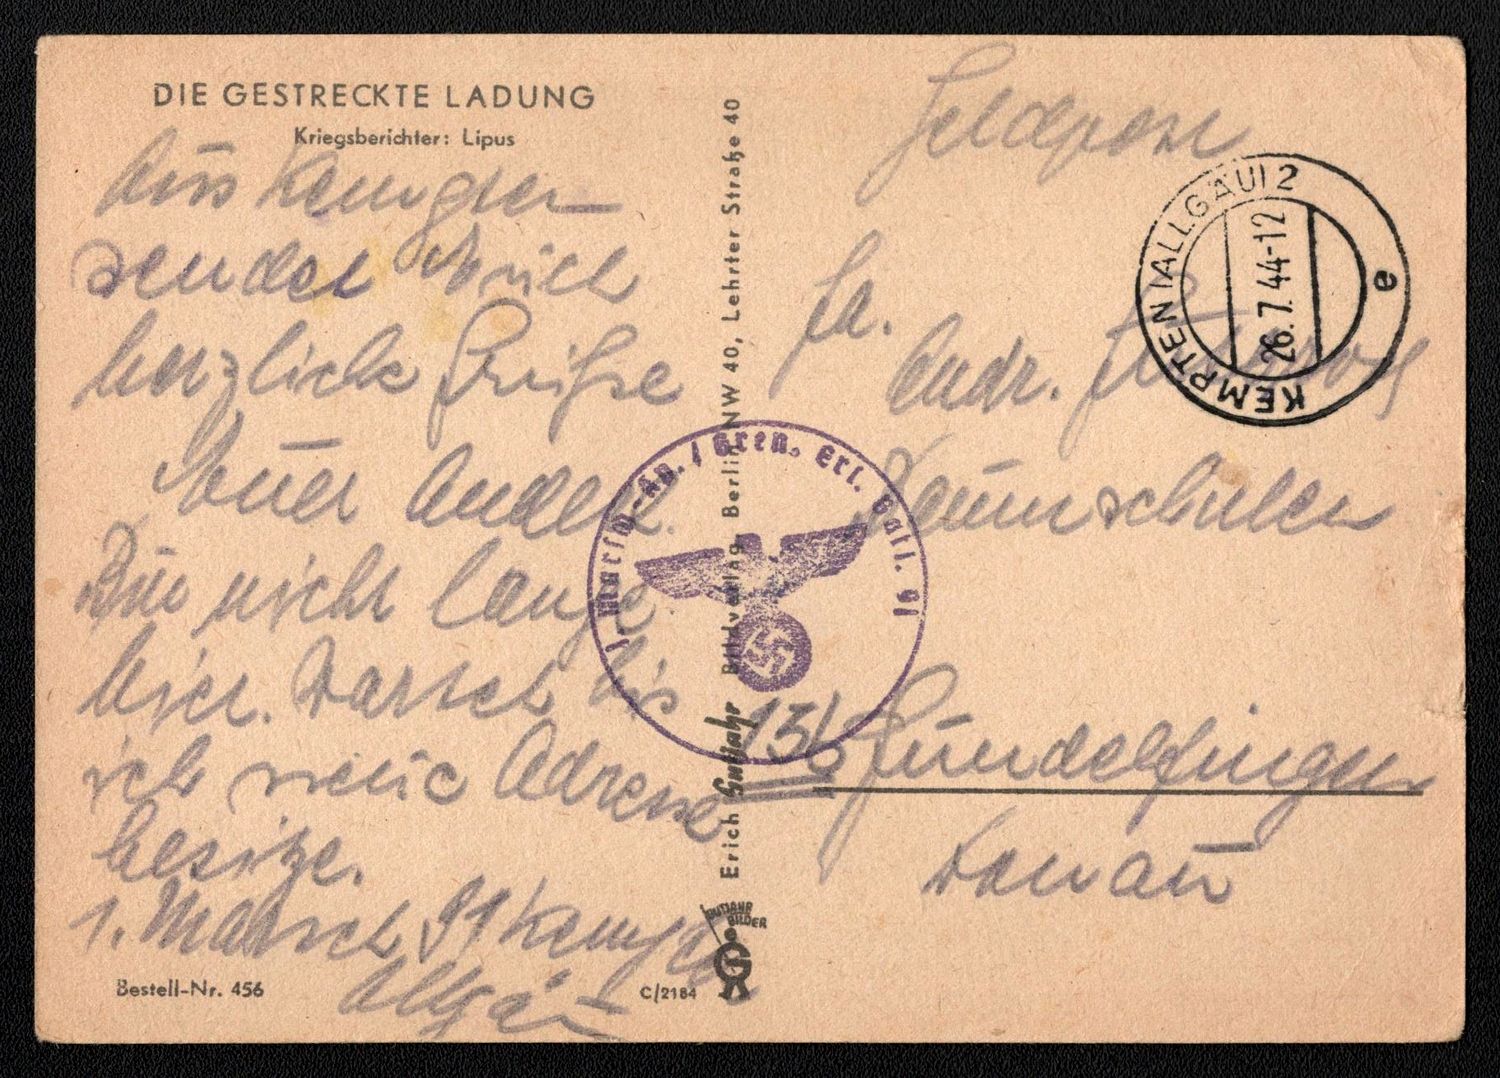 DIE GESTRECKTE LADUNG
Kriegsberichter: Lipus
Aus Kempten
sendet Euch
herzliche Grüße
Euer
Bin nicht lange
hier. Wartet bis
ich neue Adresse
besitze.
1. Marsch 91 Kempten
Allgäu
Bestell-Nr. 456
C/2184
Erich Gutjahr Bildverlag, Berlin NW 40, Lehrter Straße 40
GUTJAHR
BILDER
1. Marsch-Kp. / Gren. Ers. Batl. 91
Feldpost
KEMPTEN (ALLGÄU) 2
26.7.44-12
e
Fa.
Andr.
Baumschulen
13b Gundelfingen
Donau